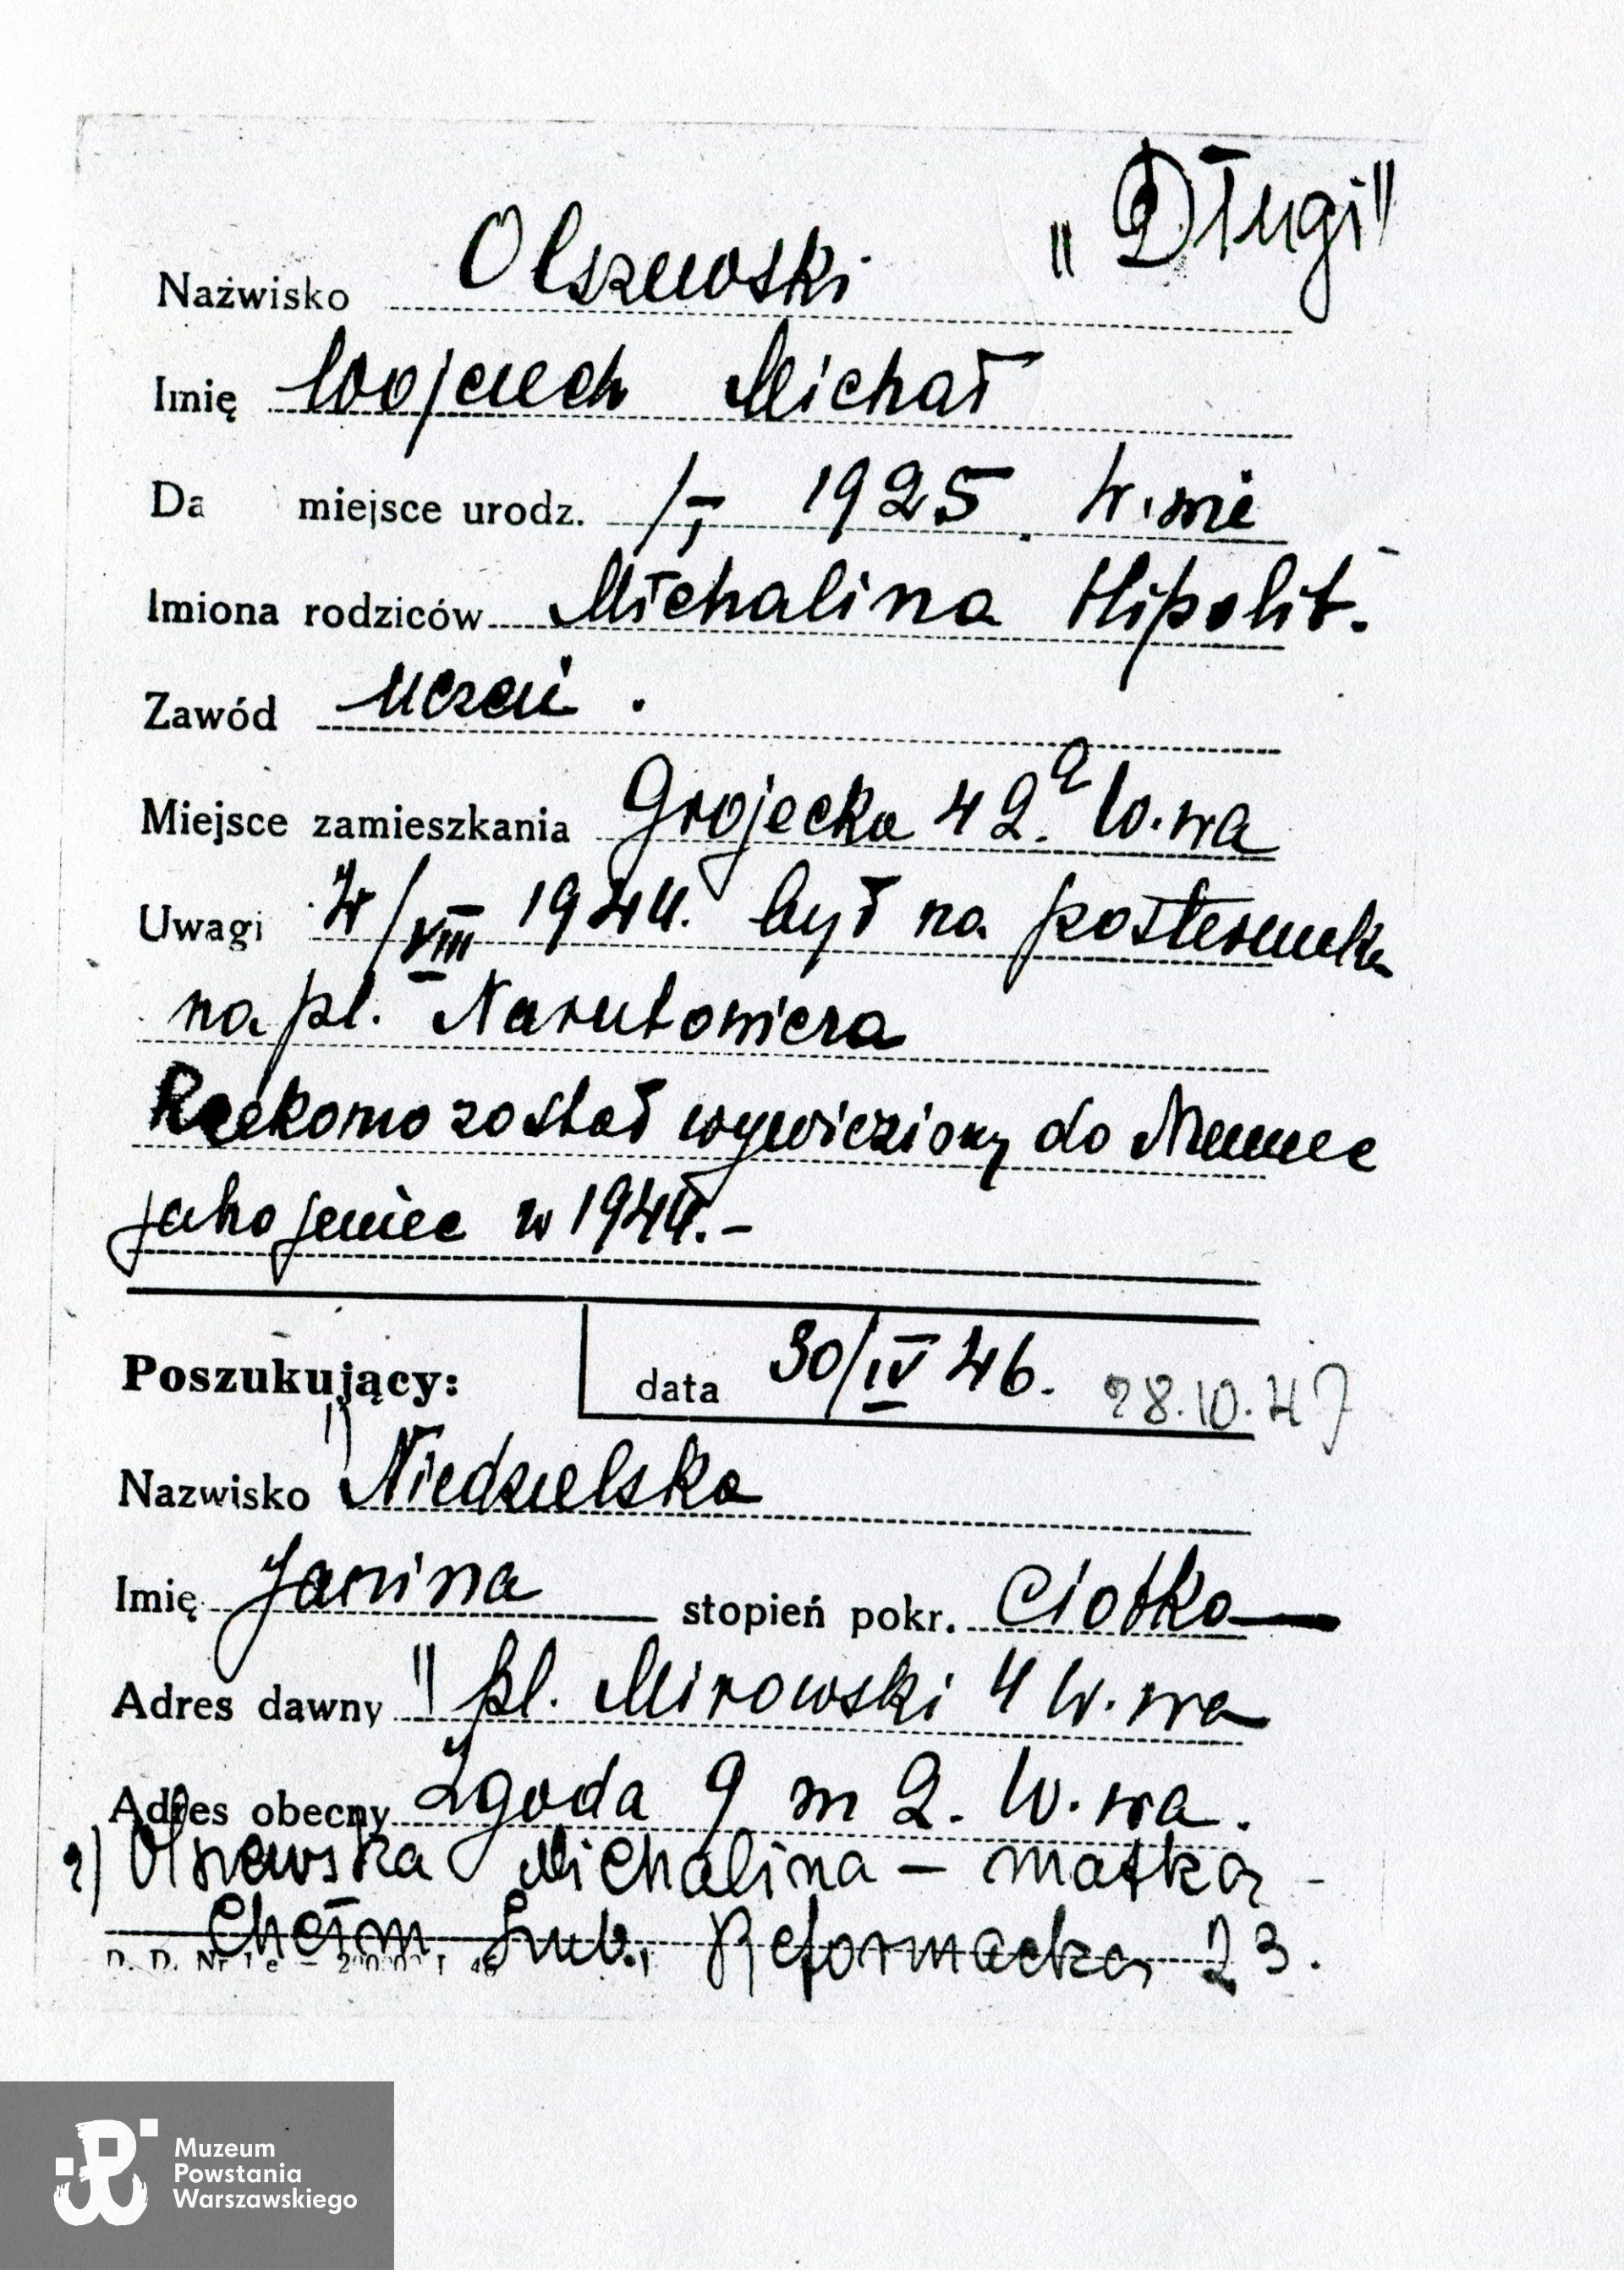 „Długi"
Nazwisko Olszewski
Imię Wojciech Michał
Da miejsce urodz. 1925. W.wie
Imiona rodziców Michalina Hipolit.
Zawód uczeń.
Miejsce zamieszkania Grojecka 42a W.wa
Uwagi W/VIII 1944. był na posterunku
na pl. Narutowicza
Rzekomo został wywieziony do Niemiec
jako jeniec w 1944.-
Poszukujący: data 30/IV 46. 28.10.47
Nazwisko 1) Niedzielska
Imię Janina stopień pokr. Ciotka
Adres dawny pl. Mirowski 4 W.wa
Adres obecny Zgoda 9 m 2. W.wa.
2) Olszewska Michalina – matka,
Chełm Lub., Reformacka, 23.
D. D. Nr
Muzeum
Powstania
Warszawskiego